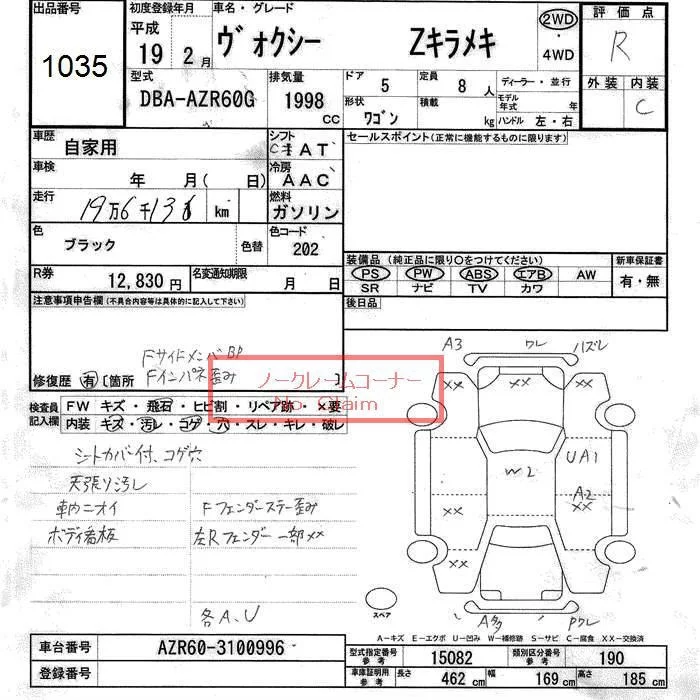 出品番号 初度登録年月 車名・グレード 評価点
1035 平成 19 2月 ヴォクシー Zキラメキ 2WD・4WD R
型式 排気量 ドア 5 定員 8人 ディーラー・並行 外装 内装
DBA-AZR60G 1998 cc 形状 ワゴン 積載 kg モデル年式 年 ハンドル 左・右 C
車歴 自家用 シフト AT セールスポイント(正常に機能するものに限ります)
車検 年 月( 日) 冷房 AAC
走行 19万6千13 km 燃料 ガソリン
色 ブラック 色替 色コード 202
装備品(純正品に限り○をつけてください) 新車保証書
R券 12,830円 名変通知期限 月 日 PS PW ABS エアB AW 有・無
SR ナビ TV カワ
注意事項申告欄(不具合内容等は具体的に記入して下さい) 後日品
Fサイドメンバ BP
修復歴 有 [箇所 Fインパネ歪み ]
ノークレームコーナー
No Claim
検査員記入欄 FW キズ・飛石・ヒビ割・リペア跡・×要
内装 キズ・汚レ・コゲ・穴・スレ・キレ・破レ
シートカバー付、コゲ穴
天張り汚レ
車内ニオイ Fフェンダーステー歪み
ボディ看板 左Rフェンダー一部××
各A、U
A3 ワレ ハズレ
×× ×× ××
W2 UA1
A2
×× ××
××
スペア A多 Pワレ
A-キズ E-エクボ U-凹み W-補修跡 S-サビ C-腐食 XX-交換済
車台番号 AZR60-3100996 型式指定番号 参考 15082 類別区分番号 参考 190
登録番号 車庫証明用 参考 長さ 462cm 幅 169cm 高さ 185cm